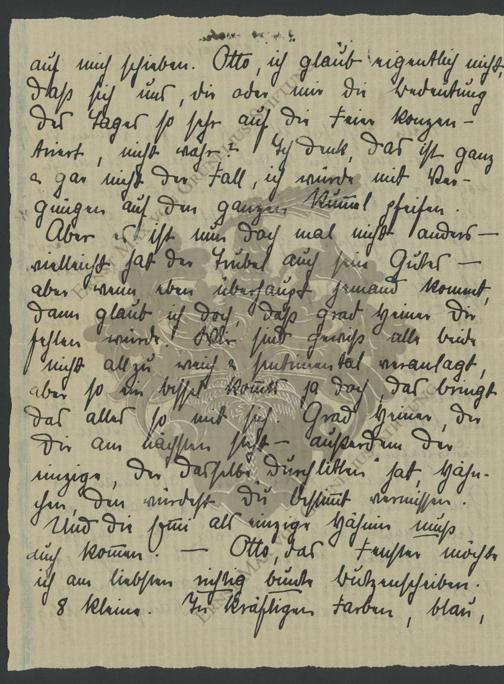 auf mich schieben. Otto, ich glaub eigentlich nicht,
daß sich uns, dir oder mir die Bedeutung
des Tages so sehr auf die Feier konzen-
triert, nicht wahr? Ich denk, das ist ganz
u gar nicht der Fall, ich würde mit Ver-
gnügen auf den ganzen Küm̅el pfeifen.
Aber es ist nun doch mal nicht anders –
vielleicht hat der Trubel auch sein Gutes –
aber wenn eben überhaupt jemand kommt,
dann glaub ich doch, daß grad Heiner Dir
fehlen würde. Wir sind gewiß alle beide
nicht allzu weich u sentimental veranlagt,
aber so ein bissel kom̅t ja doch, das bringt
das alles so mit sich. Grad Heiner, der
Dir am nächsten steht – außerdem der
einzige, der dasselbe "durchlitten" hat, Hähn-
chen, den würdest Du bestim̅t vermissen.
Und die als einzige muß
auch kom̅en. – Otto, das Fenster möchte
ich am liebsten richtig bunte Butzenscheiben.
8 kleine. In kräftigen Farben, blau,